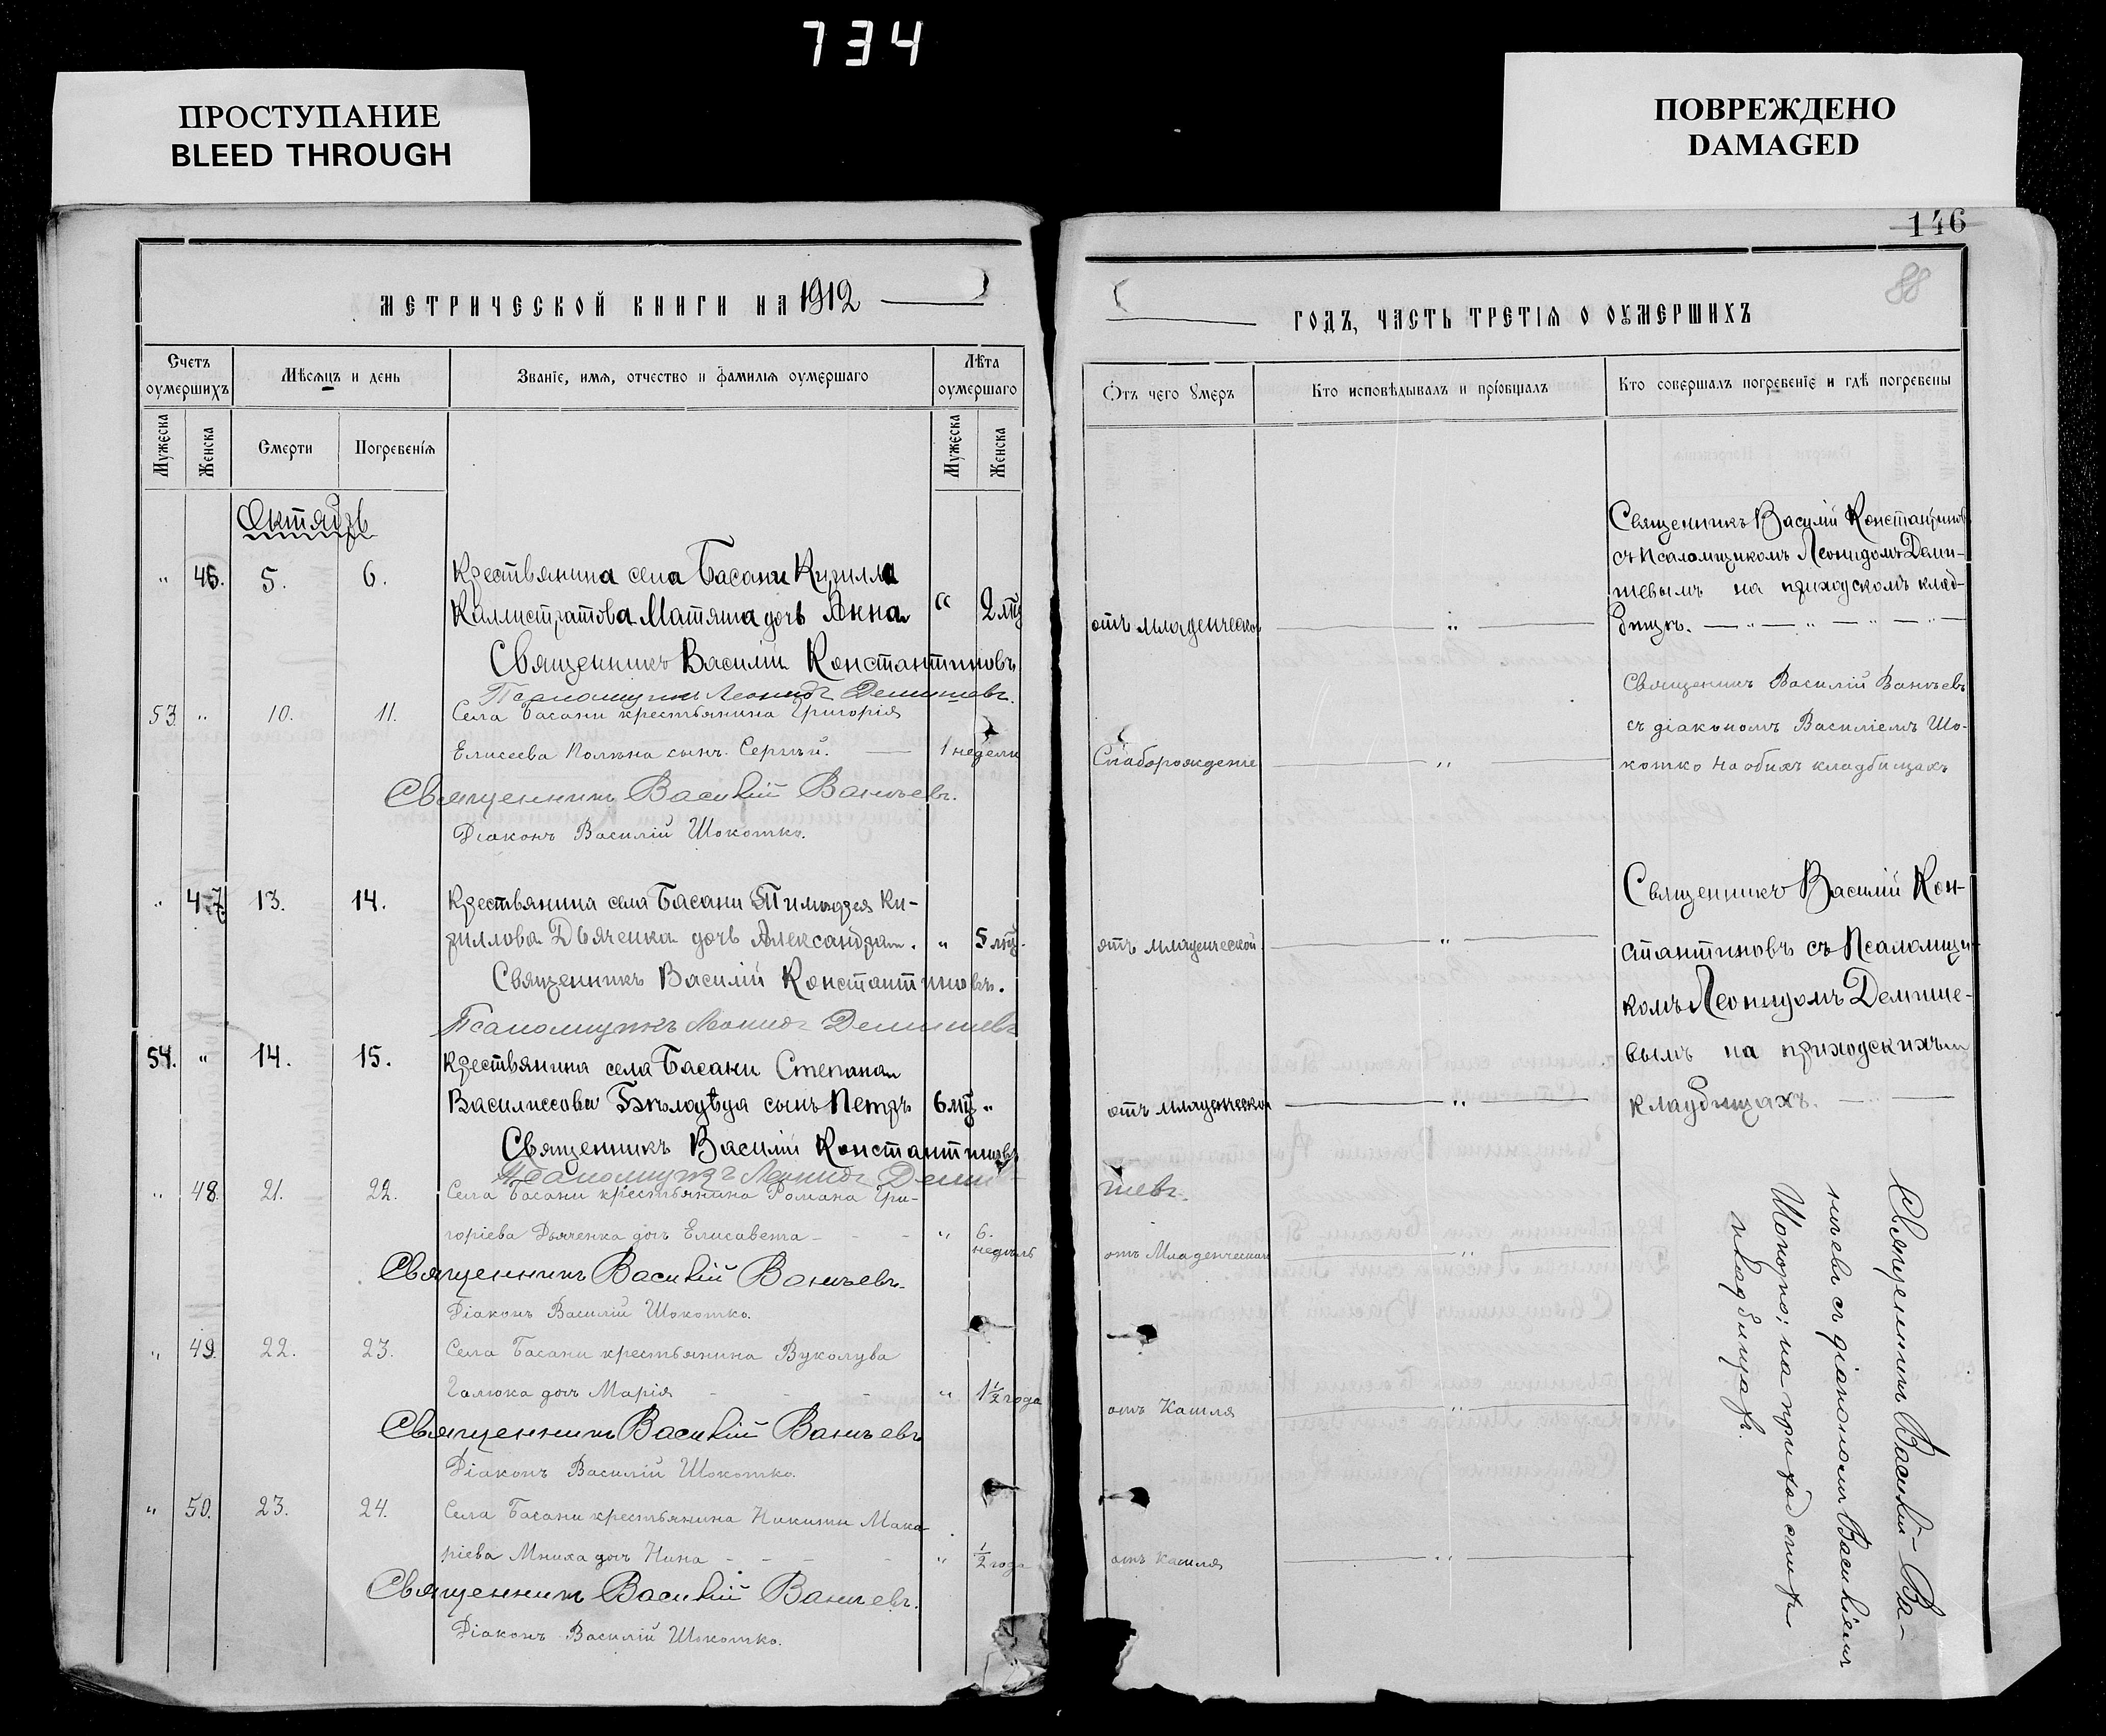 734
ПРОСТУПАНИЕ
BLEED THROUGH
ПОВРЕЖДЕНО
DAMAGED
146
88
МЕТРИЧЕСКОЙ КНИГИ НА 1912
ГОДЪ, ЧАСТЬ ТРЕТІЯ О ОУМЕРШИХЪ
Счетъ оумершихъ
Мѣсяцъ и день
Званіе, имя, отчество и фамилія оумершаго
Лѣта оумершаго
Отъ чего умеръ
Кто исповѣдывалъ и пріобщалъ
Кто совершалъ погребеніе и гдѣ погребены
Мужеска
Женска
Смерти
Погребенія
Мужеска
Женска
Октябрь
" 46. 5. 6. Крестьянина села Басани Кирилла
Каллистратова Матяша дочь Анна " 2 лѣтъ
отъ младенческой "
Священникъ Василій Константиновъ
съ Псаломщикомъ Леонидомъ Деми-
шевымъ на приходскомъ клад-
бищѣ. — " — " — " —
Священникъ Василій Константиновъ
Псаломщикъ Леонидъ Демишевъ.
53 " 10. 11. Села Басани крестьянина Григорія
Елисеева сынъ Сергѣй. — 1 недели
Слаборожденіе "
Священникъ Василій Ваньѣевъ
съ діакономъ Василіемъ Шо-
котко на обихъ кладбищахъ
Священникъ Василій Ваньѣевъ.
Діаконъ Василій Шокотко.
" 47 13. 14. Крестьянина села Басани Тимофея Ки-
риллова Дьяченка дочь Александра. " 5 лѣтъ.
отъ младенческой "
Священникъ Василій Кон-
стантиновъ съ Псаломщи-
комъ Леонидомъ Демише-
вымъ на приходскихъ
кладбищахъ. — " —
Священникъ Василій Константиновъ.
Псаломщикъ Леонидъ Демишевъ
54. " 14. 15. Крестьянина села Басани Степана
Василиссова Бѣлодѣда сынъ Петръ 6 лѣтъ "
отъ младенческой "
Священникъ Василій Константиновъ
Псаломщикъ Леонидъ Деми-
шевъ.
" 48. 21. 22. Села Басани крестьянина Романа Гри-
горіева Дьяченка дочь Елисавета - - - " 6. недѣль
отъ Младенческой "
Священникъ Василій Ваньѣевъ.
Діаконъ Василій Шокотко.
" 49. 22. 23. Села Басани крестьянина Вуколува
Галюка дочь Марія - - - " 1½ года
отъ Кашля "
Священникъ Василій Ваньѣевъ
Діаконъ Василій Шокотко.
" 50. 23. 24. Села Басани крестьянина Никиты Мака-
ріева Мниха дочь Нина - - - - " ½ года
отъ Кашля "
Священникъ Василій Ваньѣевъ.
Діаконъ Василій Шокотко.
Священникъ Василій Ва-
ньѣевъ съ діакономъ Василіемъ
Шокотко; на приходскихъ
кладбищахъ.